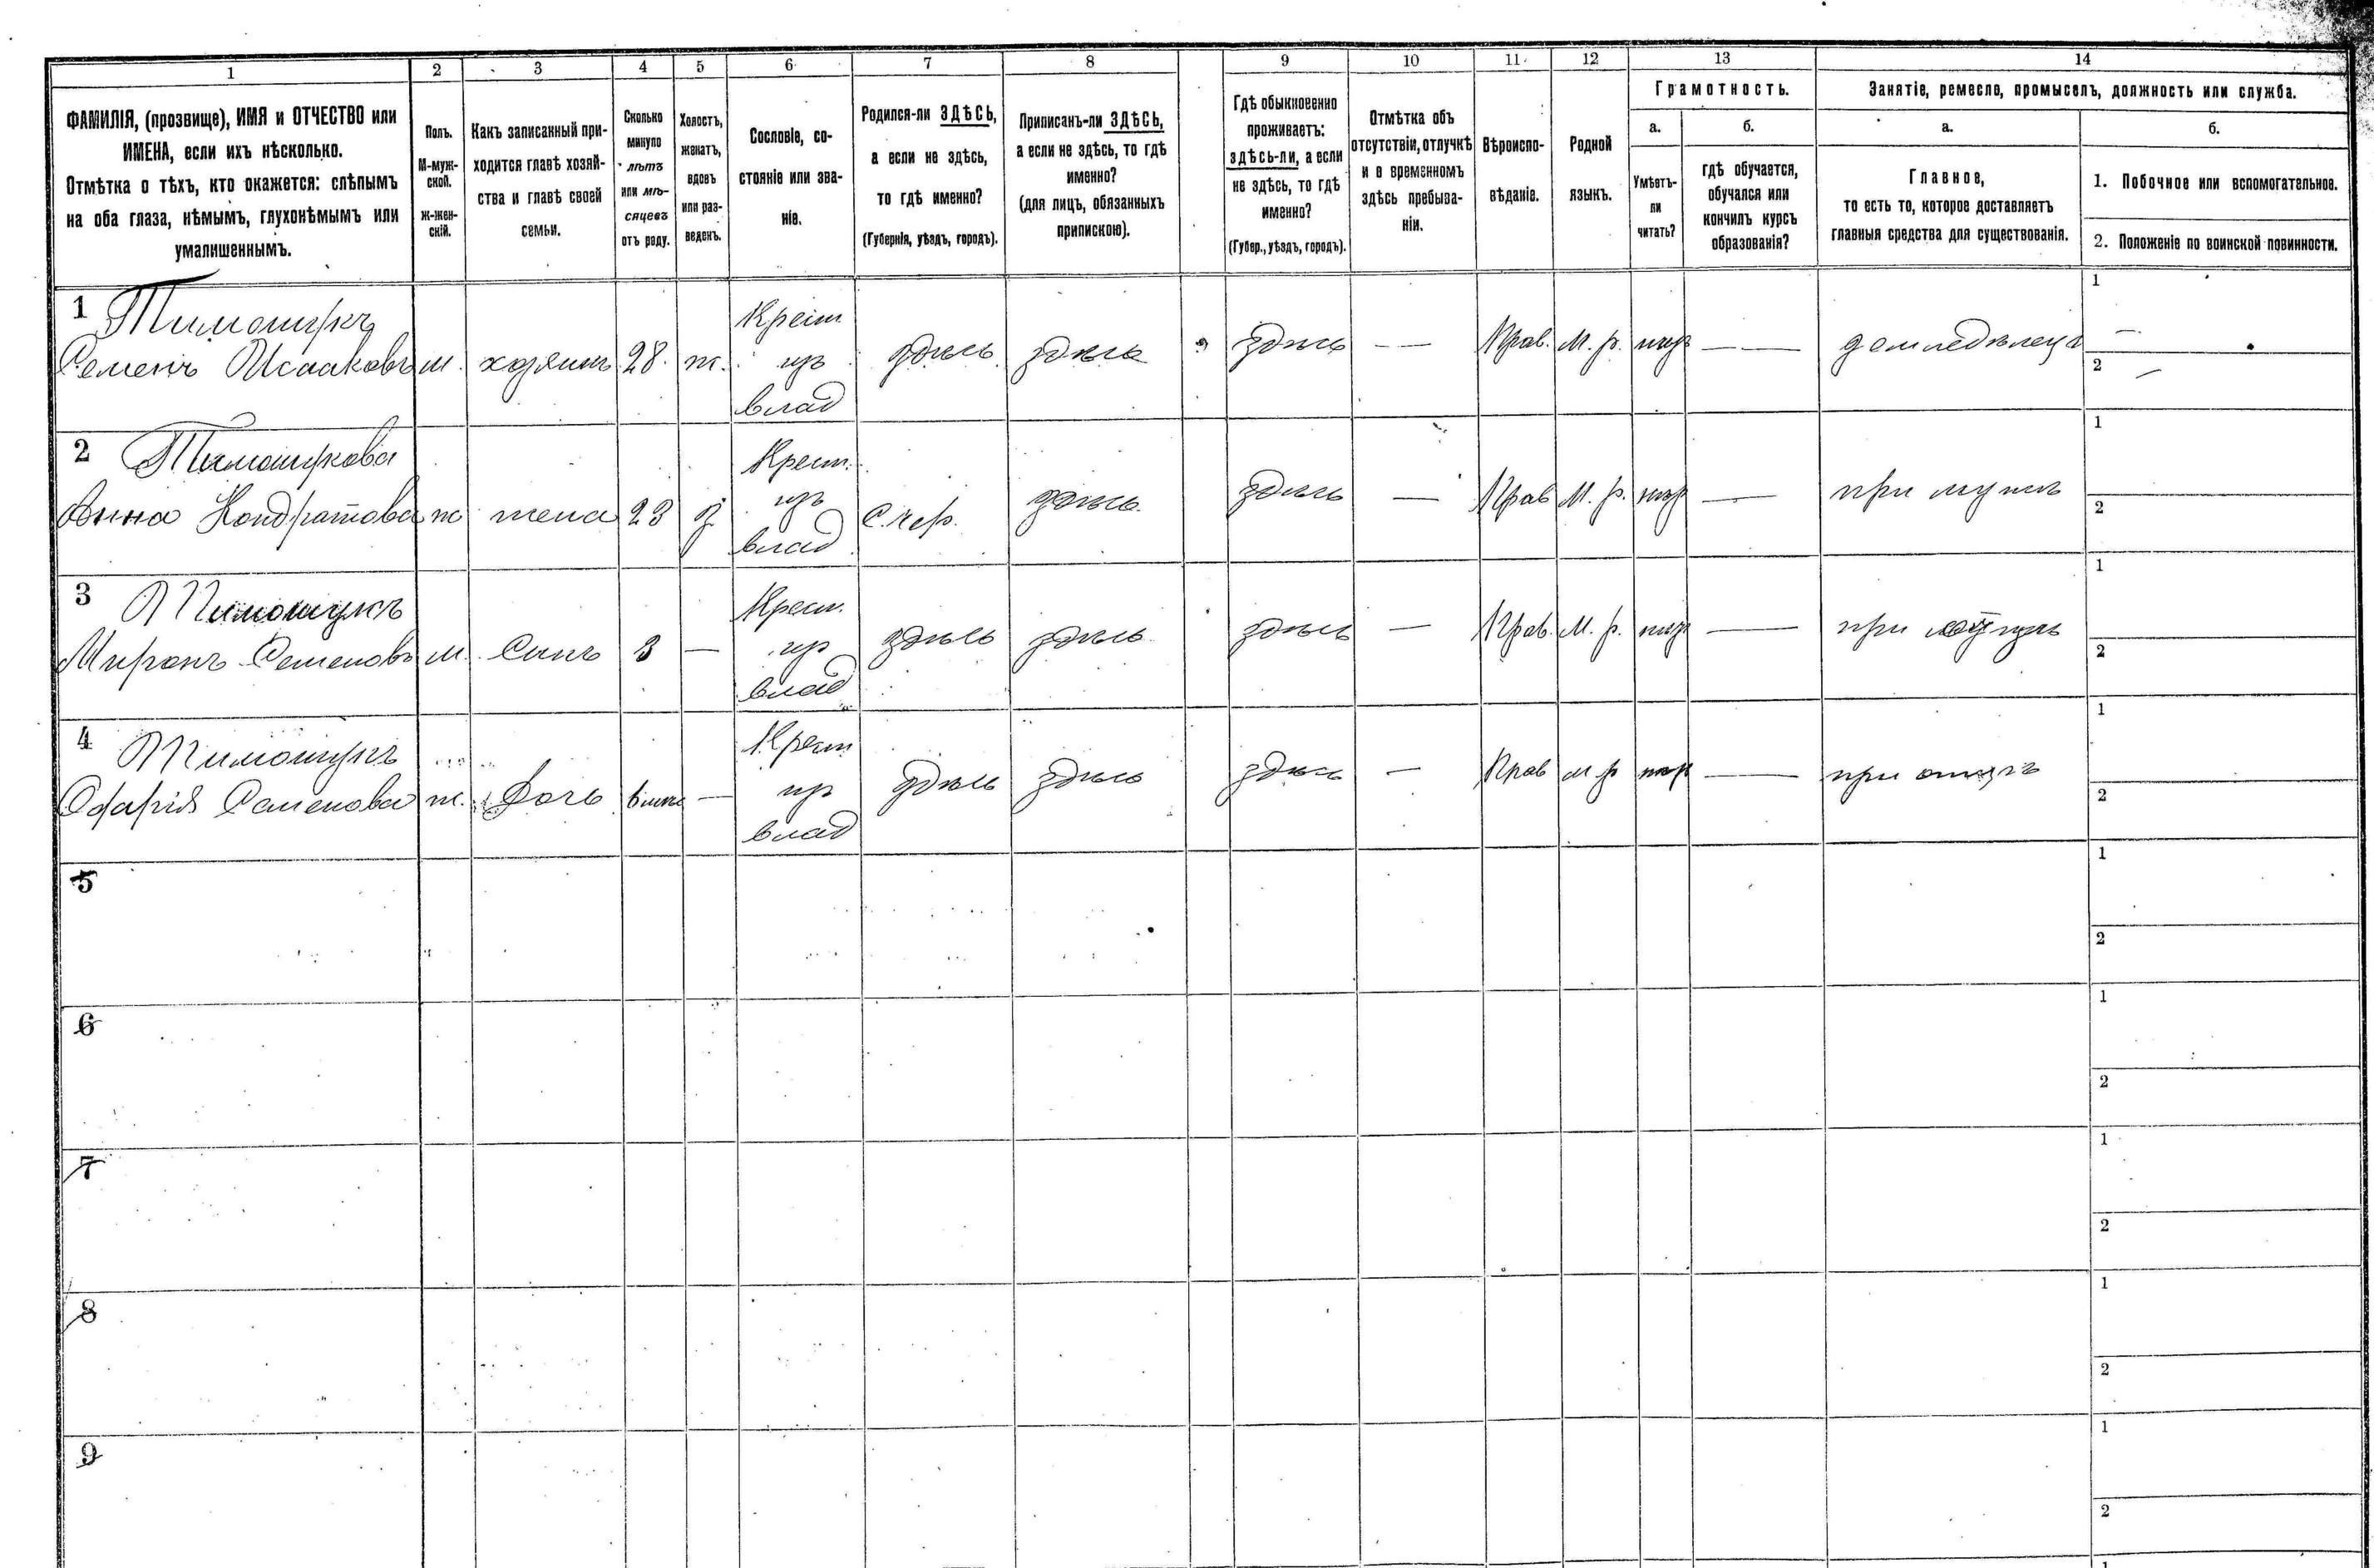 1 2 3 4 5 6 7 8 9 10 11 12 13 14
ФАМИЛІЯ, (прозвище), ИМЯ и ОТЧЕСТВО или
ИМЕНА, если ихъ нѣсколько.
Отмѣтка о тѣхъ, кто окажется: слѣпымъ
на оба глаза, нѣмымъ, глухонѣмымъ или
умалишеннымъ.
Полъ.
М-муж-
ской.
Ж-жен-
скій.
Какъ записанный при-
ходится главѣ хозяй-
ства и главѣ своей
семьи.
Сколько
минуло
лѣтъ
или мѣ-
сяцевъ
отъ роду.
Холостъ,
женатъ,
вдовъ
или раз-
веденъ.
Сословіе, со-
стояніе или зва-
ніе.
Родился-ли ЗДѢСЬ,
а если не здѣсь,
то гдѣ именно?
(Губернія, уѣздъ, городъ).
Приписанъ-ли ЗДѢСЬ,
а если не здѣсь, то гдѣ
именно?
(для лицъ, обязанныхъ
припискою).
Гдѣ обыкновенно
проживаетъ:
здѣсь-ли, а если
не здѣсь, то гдѣ
именно?
(Губер., уѣздъ, городъ).
Отмѣтка объ
отсутствіи, отлучкѣ
и о временномъ
здѣсь пребыва-
ніи.
Вѣроиспо-
вѣданіе.
Родной
языкъ.
Грамотность.
а.
Умѣетъ-
ли
читать?
б.
гдѣ обучается,
обучался или
кончилъ курсъ
образованія?
Занятіе, ремесло, промыселъ, должность или служба.
а.
Главное,
то есть то, которое доставляетъ
главныя средства для существованія.
б.
1. Побочное или вспомогательное.
2. Положеніе по воинской повинности.
1 Тимошукъ
Семенъ Исааковъ м. хозяинъ 28. ж. Крест из влад здѣсь здѣсь здѣсь — Прав. М. р. нѣт — земледѣлецъ
1 —
2 —
2 Тимошукова
Анна Кондратова ж жена 23 з Крест. из влад С. Кер. здѣсь здѣсь — Прав М. р. нѣт — при мужѣ
1
2
3 Тимошукъ
Миронъ Семеновъ м. Сынъ 3 — Крест. из влад здѣсь здѣсь здѣсь — Прав. М. р. нѣт — при отцѣ
1
2
4 Тимошукъ
Семенова ж. Дочь — Крест из влад здѣсь здѣсь здѣсь — Прав м р нѣт — при отцѣ
1
2
5
1
2
6
1
2
7
1
2
8
1
2
9
1
2
1